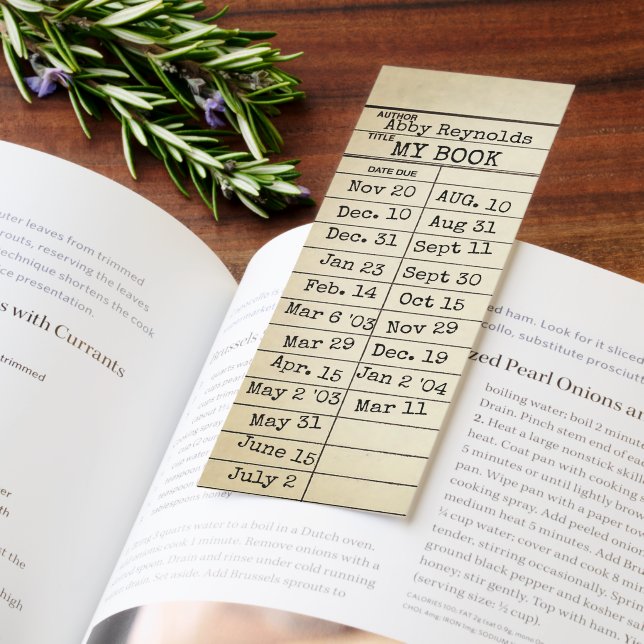 AUTHOR
Abby Reynolds
TITLE
MY BOOK
DATE DUE
Nov 20
Dec. 10
Dec. 31
Jan 23
Feb. 14
Mar 6 '03
Mar 29
Apr. 15
May 2 '03
May 31
June 15
July 2
AUG. 10
Aug 31
Sept 11
Sept 30
Oct 15
Nov 29
Dec. 19
Jan 2 '04
Mar 11
uter leaves from trimmed
routs, reserving the leaves
echnique shortens the cook
ce presentation.
s with Currants
trimmed
er
st the
high
Brussels
quarts water
honey
3 quarts water to a boil in a Dutch oven.
cook 1 minute. Remove onions with a
spoon. Drain and rinse under cold running
drain. Set aside. Add Brussels sprouts to
ed ham. Look for it sliced
collo, substitute prosciutt
zed Pearl Onions an
boiling water; boil 2 minut
Drain. Pinch stem end of ea
2. Heat a large nonstick skill
heat. Coat pan with cooking s
5 minutes or until lightly brow
pan. Wipe pan with a paper tow
cooking spray. Add peeled onion
medium heat 5 minutes. Add Brus
¼ cup water; cover and cook 8 mi
tender, stirring occasionally. Sprin
ground black pepper and kosher sa
honey; stir gently. Top with ham. Y
(serving size: ½ cup).
CALORIES 100; FAT 2g
CHOL 4mg; IRON 1mg; SODIUM